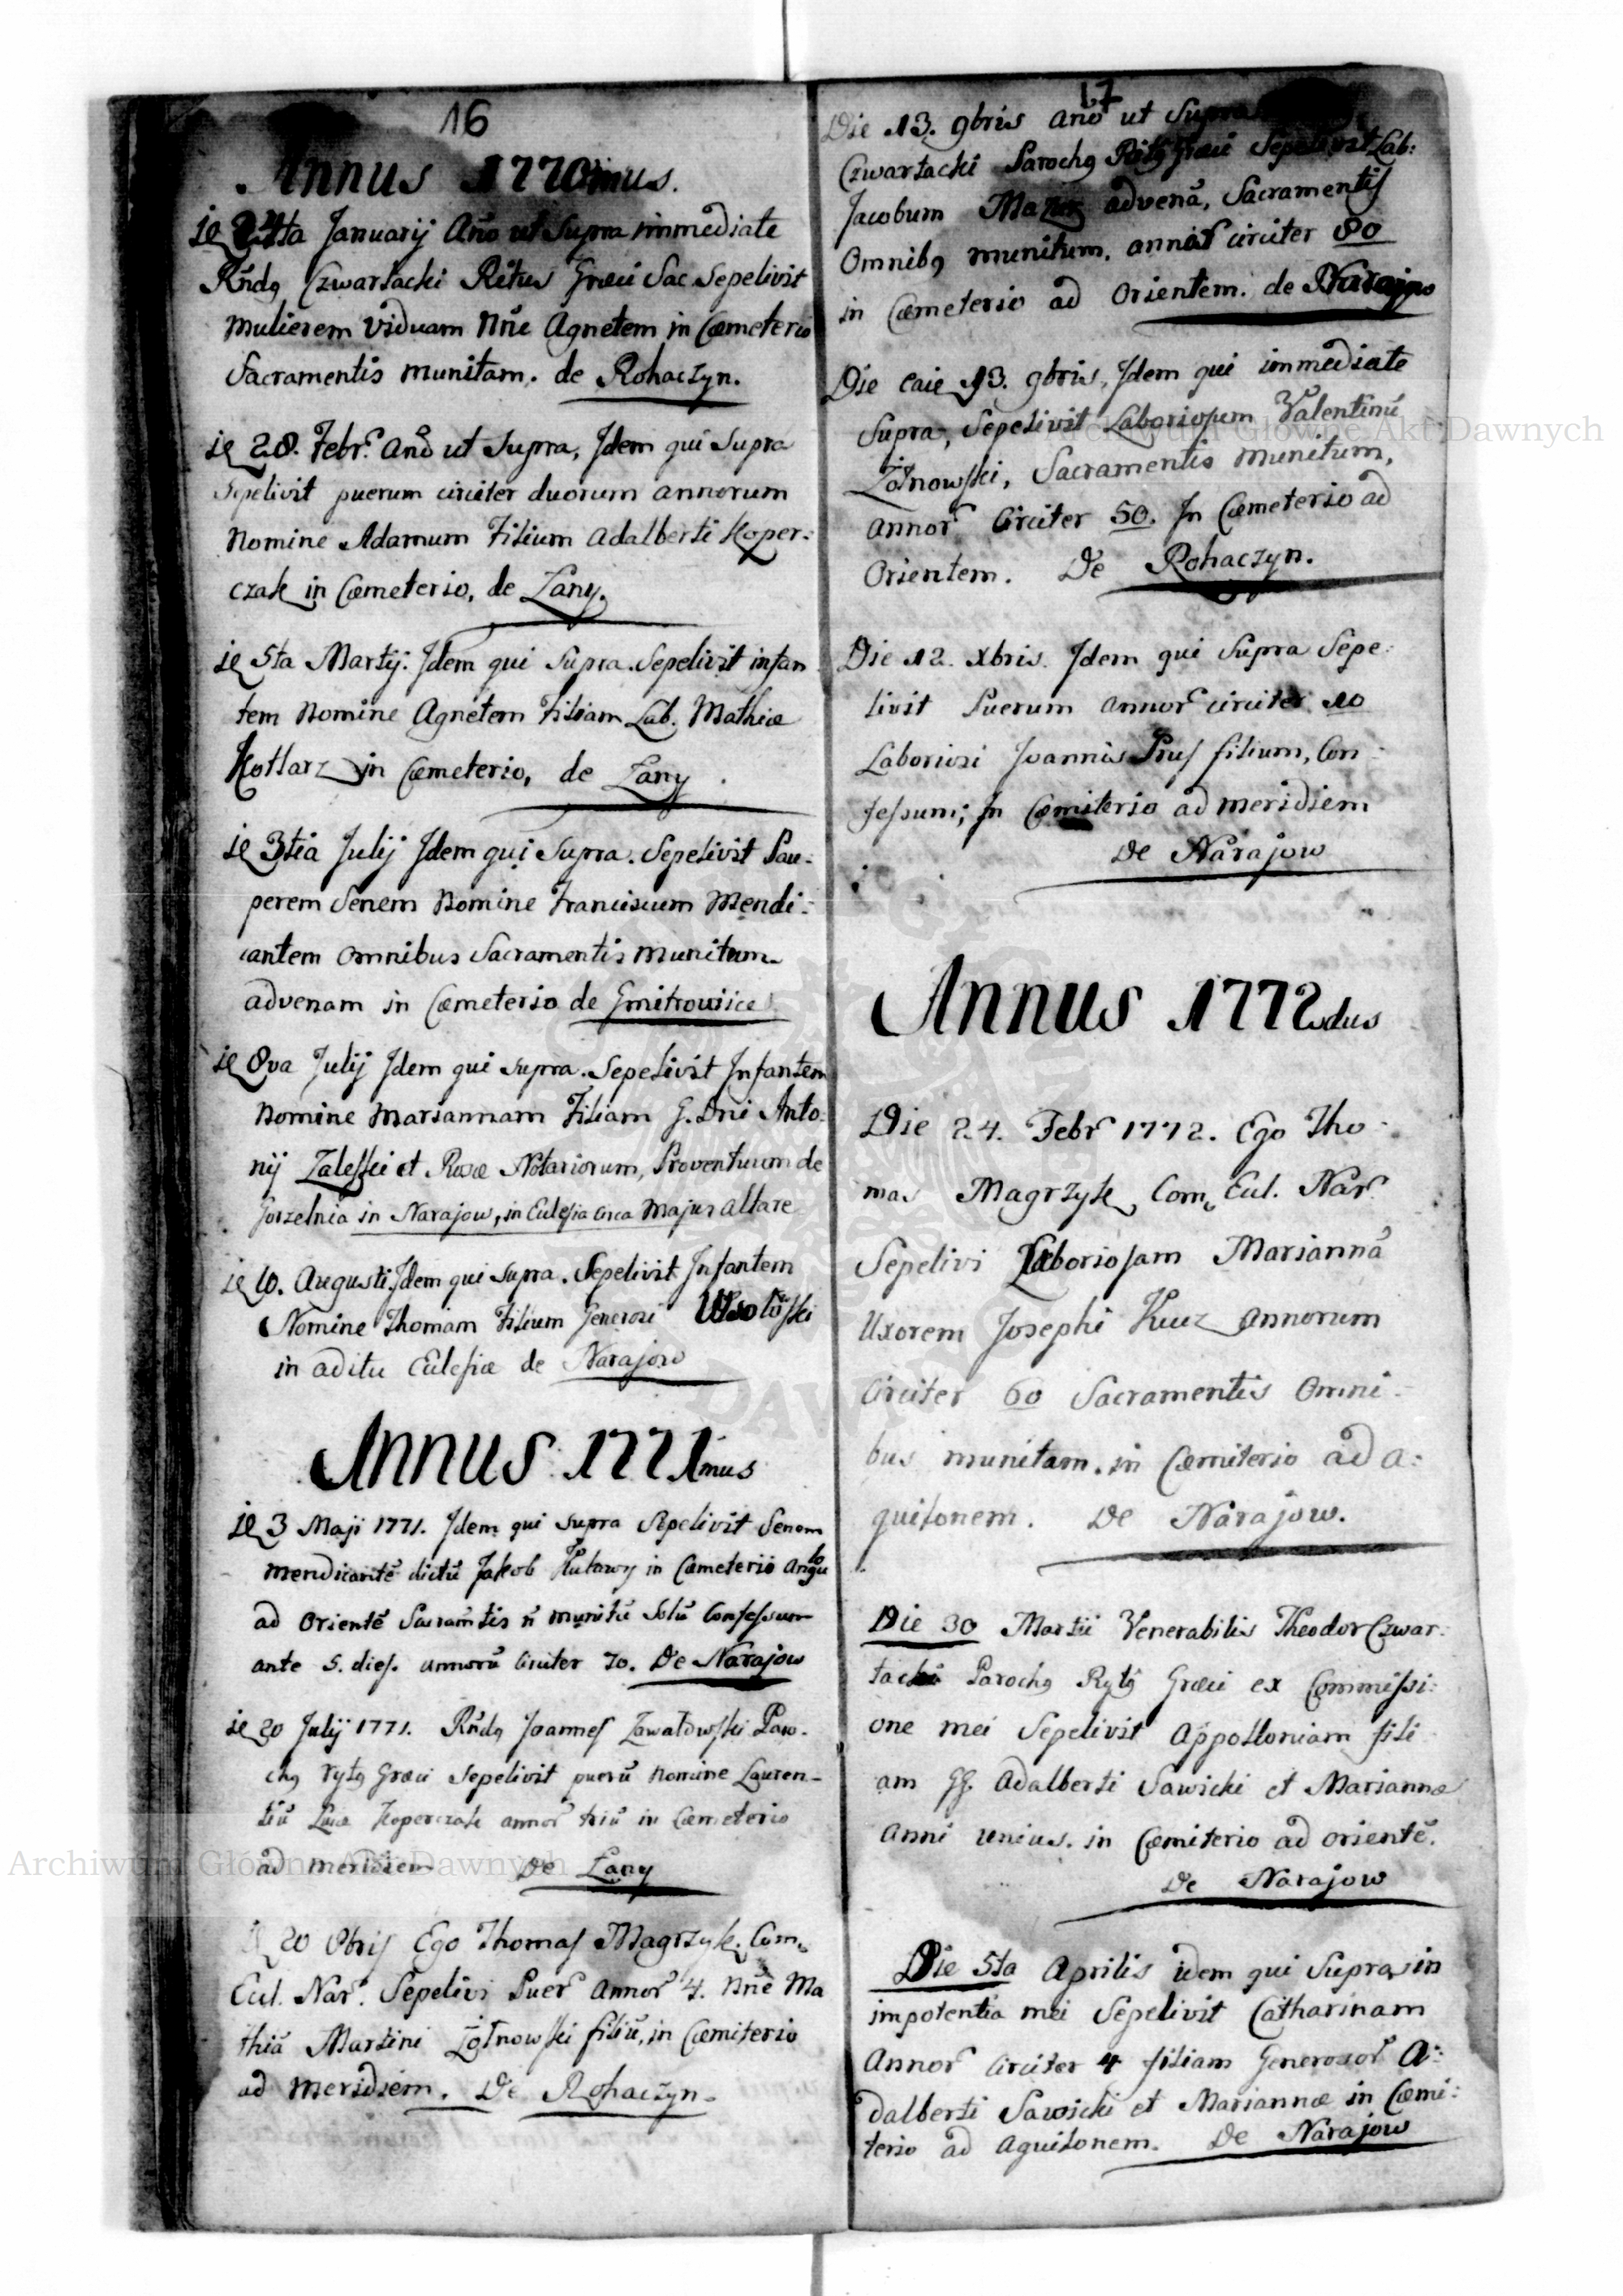 16
Annus 1770mus.
ie 24ta Januarij Año ut Supra immediate
Rñdq Czwartacki Ritus Græci Sac. Sepelivit
Mulierem Viduam Nñe Agnetem in Cæmeterio
Sacramentis munitam. de Rohaczyn.
ie 28. Febr. Anõ ut Supra, Idem qui Supra
Sepelivit puerum circiter duorum annorum
Nomine Adamum Filium Adalberti Koper:
czak in Cæmeterio, de Łany.
ie 5ta Martij. Idem qui Supra. Sepelivit infan
tem Nomine Agnetem Filiam Lab. Mathiæ
Kotlarz in Cæmeterio, de Łany.
ie 3tia Julij Idem qui Supra. Sepelivit Pau-
perem Senem Nomine Franciscum Mendi:
cantem Omnibus Sacramentis Munitum
advenam in Cæmeterio de Gmitrowice
ie 8va Julij Idem qui supra. Sepelivit Infantem
Nomine Mariannam Filiam G. Dni Anto:
nij Zaleski et Rosæ Notariorum, Proventuum de
Gorzelnia in Narajow, in Eclesia circa Majus Altare
ie 10. Augusti. Idem qui supra. Sepelivit Infantem
Nomine Thomam Filium Generosi
in aditu Eclesiæ de Narajow
Annus 1771mus
ie 3 Maji 1771. Idem qui supra Sepelivit Senem
mendicantẽ dictũ Jakob Kulawy in Cæmeterio angu
lo
ad Orientẽ Sacramtis ñ munitũ Solũ Confessum
ante 5. dies. annorũ Circiter 70. De Narajow
ie 20 Julij 1771. Rñdq Joannes Zawałowski Paro-
chq rytq Græci Sepelivit puerũ nomine Lauren-
tiũ Lucæ Koperczak annor triũ in Cæmeterio
ad meridiem De Łany
20 8bris Ego Thomas Magrzyk. Com.
Ecl. Nar. Sepelivi Puer Annor 4. Nñe Ma
thiã Martini Żołnowski filiũ, in Cæmiterio
ad Meridiem. De Rohaczyn.
17
Die 13. 9bris Anõ ut Supra
Czwartacki Parochq Ritq Græci Sepelivit Lab:
Jacobum Mazur advenã, Sacramentis
Omnibq munitum. annor circiter 80
in Cæmeterio ad Orientem. de Narajow
Die eaie 13. 9bris, Idem qui immediate
Supra, Sepelivit Laboriosum Valentinũ
Żołnowski, Sacramentis munitum,
annor Circiter 50. In Cæmeterio ad
Orientem. De Rohaczyn.
Die 12. Xbris. Idem qui Supra Sepe:
livit Puerum annor circiter 10
Laboriosi Joannis Prus filium, Con:
fessum; In Cæmiterio ad meridiem
De Narajow
Annus 1772dus
Die 24. Febr 1772. Ego Tho-
mas Magrzyk Com. Ecl. Nar.
Sepelivi Laboriosam Mariannã
Uxorem Josephi Kucz Annorum
Circiter 60 Sacramentis Omni-
bus munitam. in Cæmiterio ad A:
quilonem. De Narajow.
Die 30 Martii Venerabilis Theodor Czwar:
tacki Parochq Rytq Græci ex Commissi:
one mei Sepelivit Appolloniam fili
am GG. Adalberti Sawicki et Mariannæ
Anni unius. in Cæmiterio ad orientẽ.
De Narajow
Die 5ta Aprilis idem qui Supra in
impotentia mei Sepelivit Catharinam
Annor Circiter 4 filiam Generosor A:
dalberti Sawicki et Mariannæ in Cæmi:
terio ad Aquilonem. De Narajow
Archiwum Główne Akt Dawnych
Archiwum Główne Akt Dawnych